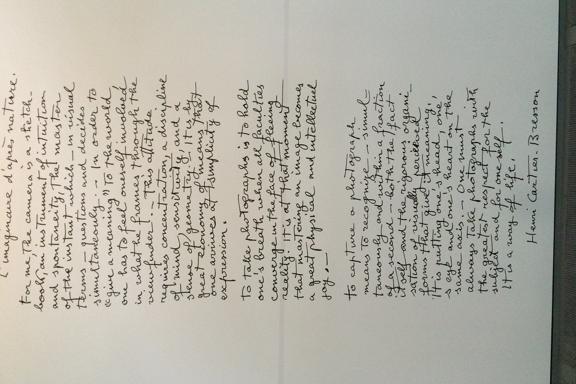 L'imaginaire d'après nature.
For me, The camera is a sketch-
book, an instrument of intuition
and spontaneity, The master
of the instant which — in visual
terms — questions and decides
simultaneously. In order to
"give a meaning" to the world
one has to feel oneself involved
in what he frames through the
viewfinder. This attitude
requires concentration, a discipline
of mind, sensitivity, and a
sense of geometry. It is by
great economy of means that
one arrives at simplicity of
expression.
To take photographs is to hold
one's breath when all faculties
converge in the face of fleeing
reality. It is at that moment
that mastering an image becomes
a great physical and intellectual
joy. —
To capture a photograph
means to recognise — simul-
taneously and within a fraction
of a second — both the fact
itself and the rigorous organi-
sation of visually perceived
forms that give it meaning.
It is putting one's head, one'
s eye and one's heart on the
same axis. One must
always take photographs with
the greatest respect for the
subject and for one self.
It is a way of life.
Henri Cartier-Bresson